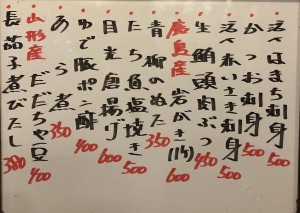 活〆はまち刺身 500
かつお刺身 500
活〆赤いさき刺身 500
生鮪頭肉ぶつ 450
鹿島産 岩がき(1ケ) 600
青柳のぬた 350
たちうお塩焼き 500
目光唐揚げ 600
ゆで豚ポン酢 400
あら煮 350
山形産 だだちゃ豆 400
長茄子煮びたし 380